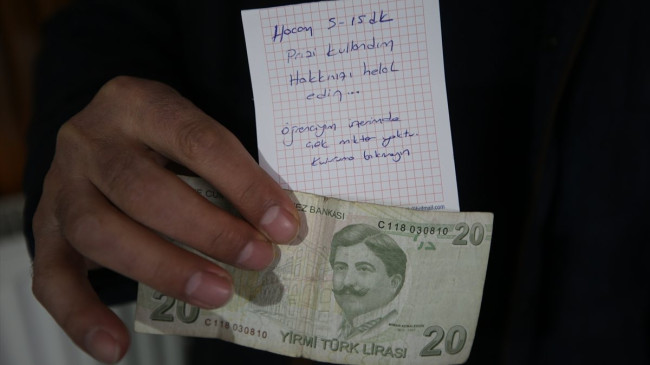 Hocam 5-15 dk
Prizi kullandım
Hakkınızı helal
edin...
öğrenciyim üzerimde
çok miktar yoktu.
kusura bakmayın
hotmail.com
EZ BANKASI
C118 030810 20
20 C118 030810
YİRMİ TÜRK LİRASI 20